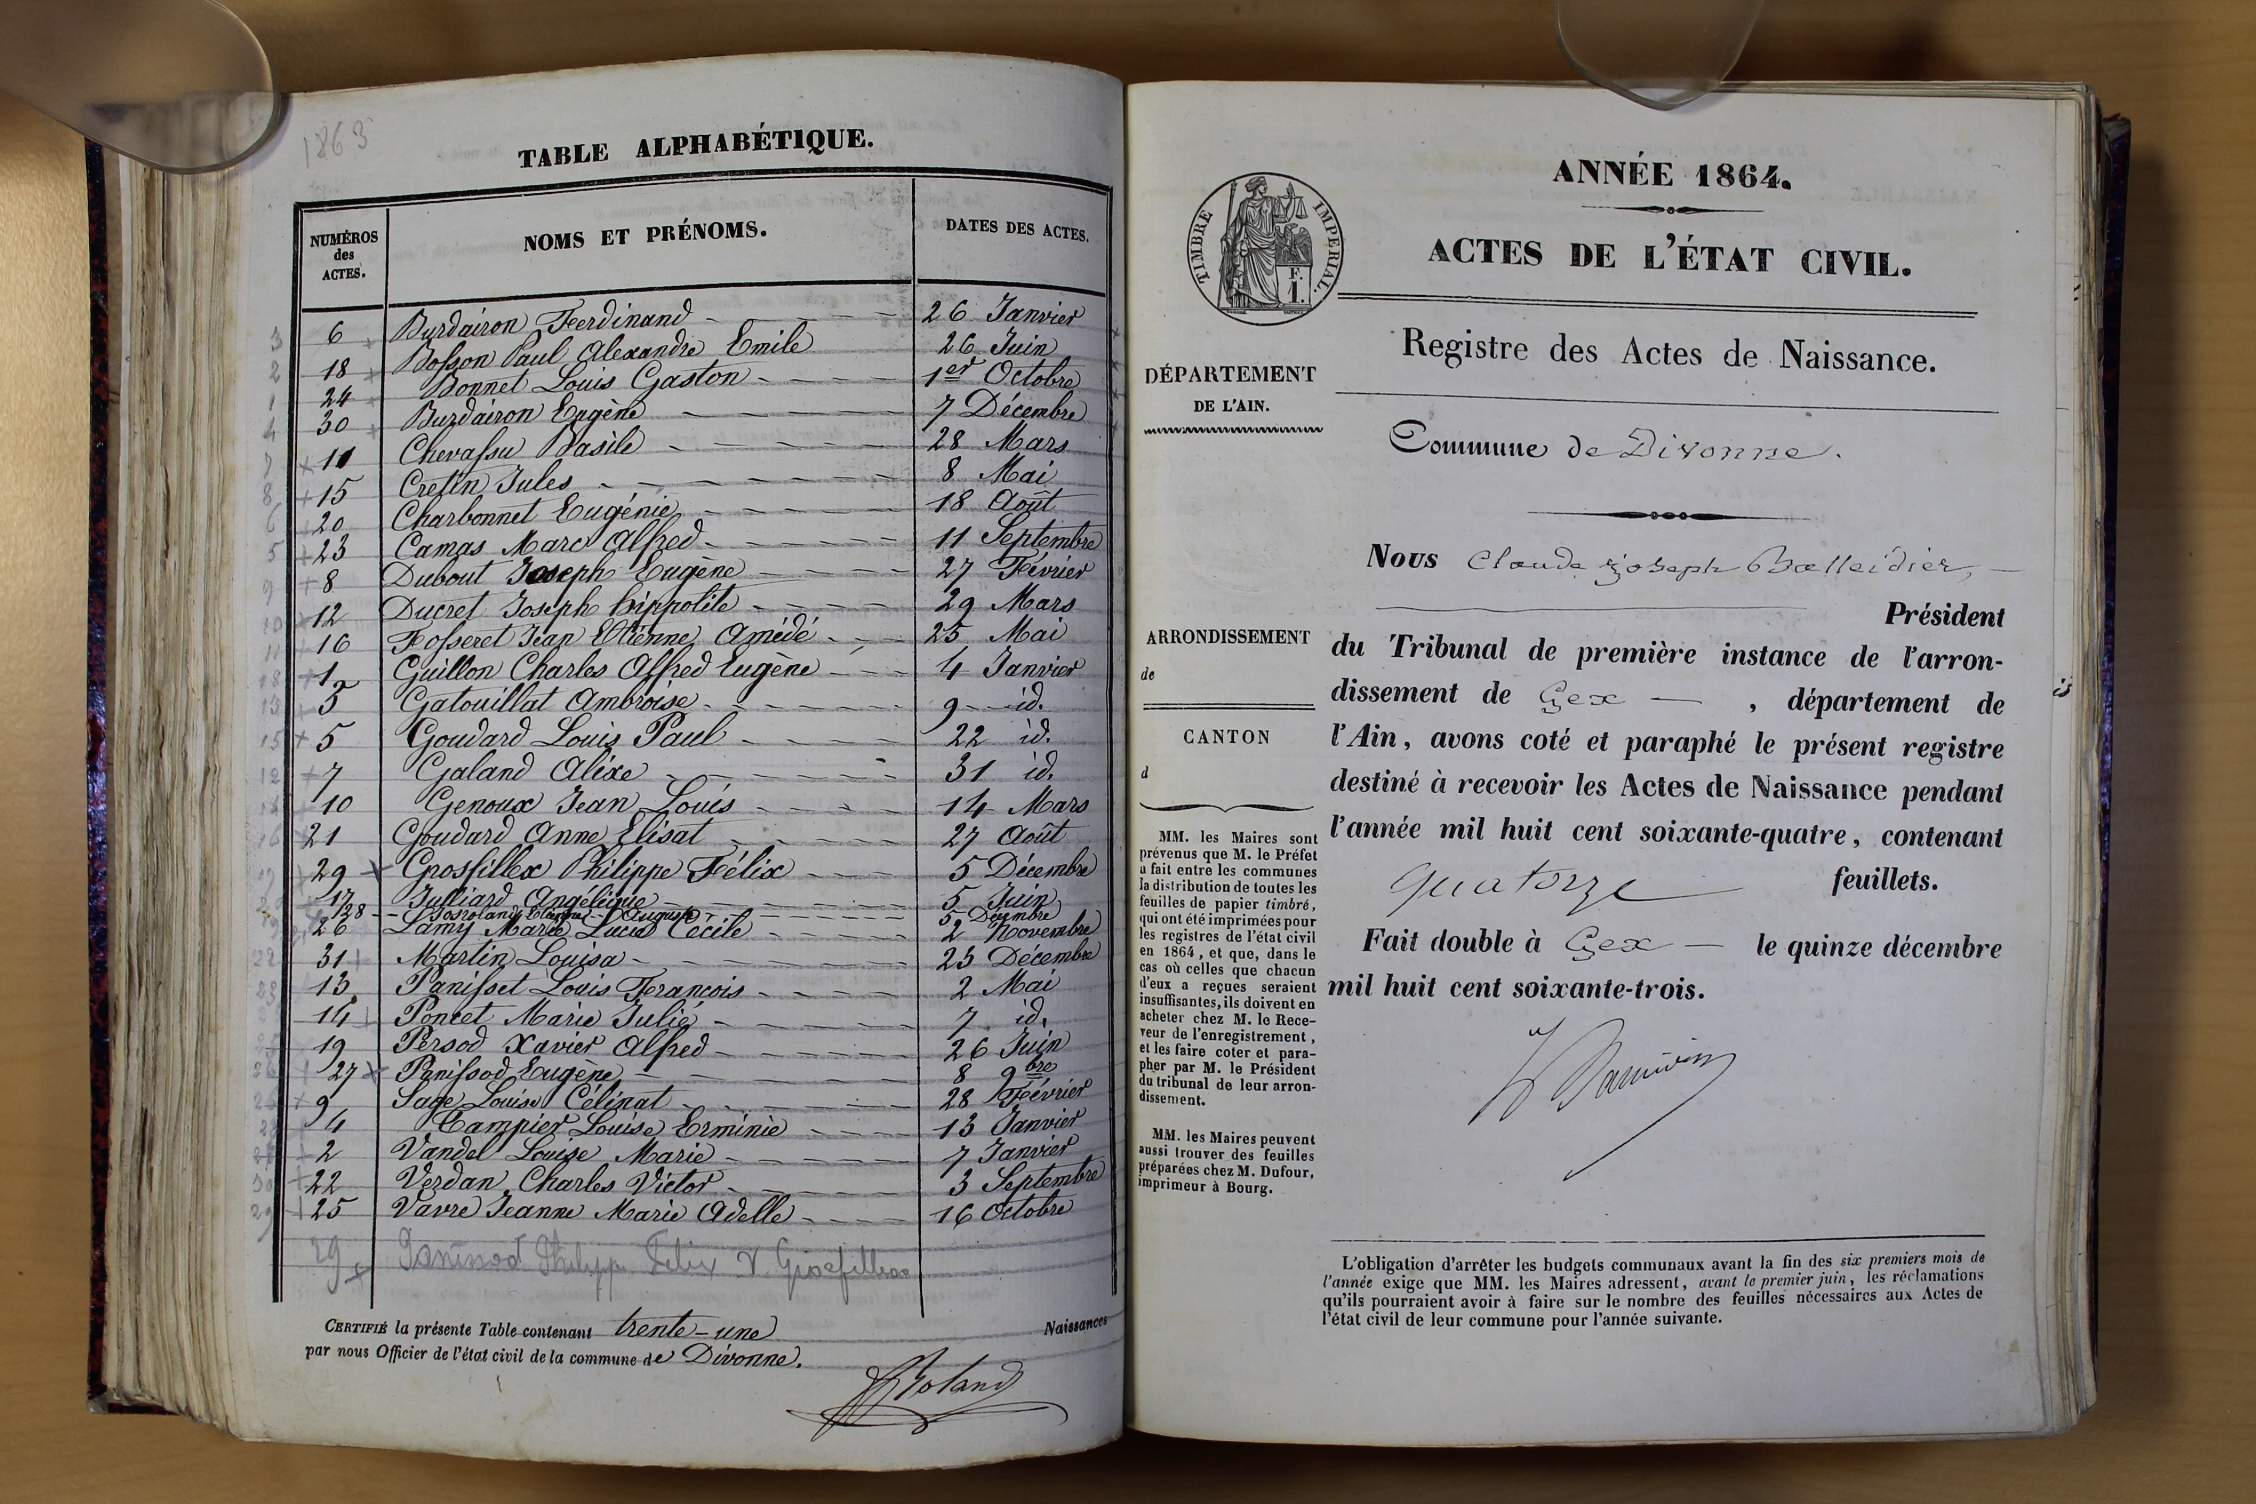 1863
TABLE ALPHABÉTIQUE.
NUMÉROS des ACTES. NOMS ET PRÉNOMS. DATES DES ACTES.
6 Burdairon Ferdinand 26 Janvier
18 Bosson Paul Alexandre Emile 26 Juin
24 Bonnet Louis Gaston 1er Octobre
30 Burdairon Eugène 7 Décembre
11 Chevassu Basile 28 Mars
15 Cretin Jules 8 Mai
20 Charbonnet Eugénie 18 Août
23 Camas Marc Alfred 11 Septembre
8 Dubout Joseph Eugène 27 Février
12 Ducret Joseph hippolite 29 Mars
16 Fosseret Jean Etienne Amédé 25 Mai
1 Guillon Charles Alfred Eugène 4 Janvier
3 Gatouillat Ambroise 9 id.
5 Goudard Louis Paul 22 id.
7 Galand Alixe 31 id.
10 Genoux Jean Louis 14 Mars
21 Goudard Anne Elisat 27 Août
29 Grosfillex Philippe Félix 5 Décembre
17 Julliard Angélique 5 Juin
28 Etienne Auguste 5 Décembre
26 Lamy Marie Lucie Cécile 2 Novembre
31 Martin Louisa 25 Décembre
13 Panisset Louis François 2 Mai
14 Poncet Marie Julie 7 id.
19 Persod Xavier Alfred 26 Juin
27 Panissod Eugène 8 9bre
9 Sage Louise Célinat 28 Février
4 Tampier Louise Erminie 13 Janvier
2 Vandel Louise Marie 7 Janvier
22 Verdan Charles Victor 3 Septembre
25 Vavre Jeanne Marie Adelle 16 Octobre
29 Panissod Philippe Felix V. Grosfillex
CERTIFIÉ la présente Table contenant trente-une Naissances
par nous Officier de l'état civil de la commune de Divonne.
Roland
ANNÉE 1864.
TIMBRE IMPERIAL.
F.
I.
ACTES DE L'ÉTAT CIVIL.
Registre des Actes de Naissance.
DÉPARTEMENT
DE L'AIN.
Commune de Divonne.
Nous Claude Joseph Balleidier,
Président
ARRONDISSEMENT
de
CANTON
d
du Tribunal de première instance de l'arron-
dissement de Gex, département de
l'Ain, avons coté et paraphé le présent registre
destiné à recevoir les Actes de Naissance pendant
l'année mil huit cent soixante-quatre, contenant
quatorze feuillets.
Fait double à Gex le quinze décembre
mil huit cent soixante-trois.
MM. les Maires sont
prévenus que M. le Préfet
a fait entre les communes
la distribution de toutes les
feuilles de papier timbré,
qui ont été imprimées pour
les registres de l'état civil
en 1864, et que, dans le
cas où celles que chacun
d'eux a reçues seraient
insuffisantes, ils doivent en
acheter chez M. le Rece-
veur de l'enregistrement,
et les faire coter et para-
pher par M. le Président
du tribunal de leur arron-
dissement.
MM. les Maires peuvent
aussi trouver des feuilles
préparées chez M. Dufour,
imprimeur à Bourg.
L'obligation d'arrêter les budgets communaux avant la fin des six premiers mois de
l'année exige que MM. les Maires adressent, avant le premier juin, les réclamations
qu'ils pourraient avoir à faire sur le nombre des feuilles nécessaires aux Actes de
l'état civil de leur commune pour l'année suivante.